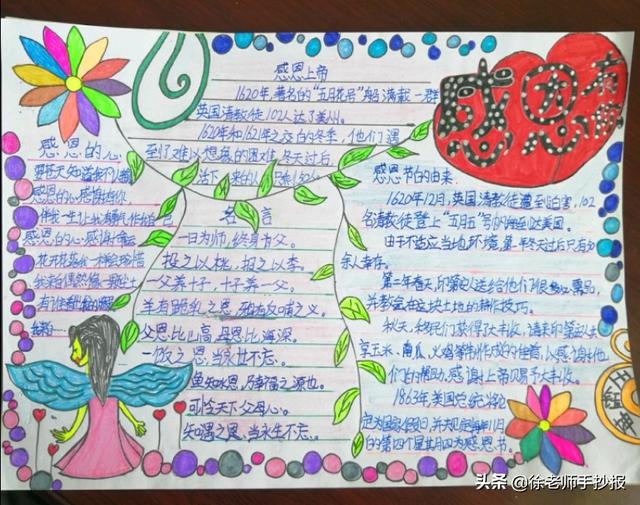 感恩上帝
1620年,著名的“五月花号”船满载一群
英国清教徒102人达了美州。
1620年和1621年之交的冬季,他们遇
到了难以想象的困难,冬天过后,
活下来的人
感恩
有你
感恩的心
感恩的心感谢有你
感恩的心感谢命运
花开花落我一样会珍惜
我来自偶然像一颗尘土
名言
一日为师,终身为父。
投之以桃,报之以李。
一父养十子,十子养一父。
羊有跪乳之恩,鸦有反哺之义。
父恩比山高,母恩比海深。
一饭之恩,当永世不忘。
鱼知水恩,乃幸福之源也。
可怜天下父母心。
知遇之恩,当永生不忘。
感恩节的由来
1620年12月,英国清教徒遭到迫害,102
名清教徒登上“五月五”号帆船到达美国。
由于不适应当地环境,第一年冬天过后只有50
余人幸存。
第二年春天,印第安人送给他们很多必需品,
并教会在这块土地的耕作技巧。
秋天,移民们获得了大丰收,请来印第安人
享玉米、南瓜、火鸡等制作成的佳肴,以感谢他
们的帮助,感谢上帝赐予大丰收。
1863年,美国总统
定为国家假日,并大规定每年11月
的第四个星其月四为感恩节。
头条 @徐老师手抄报